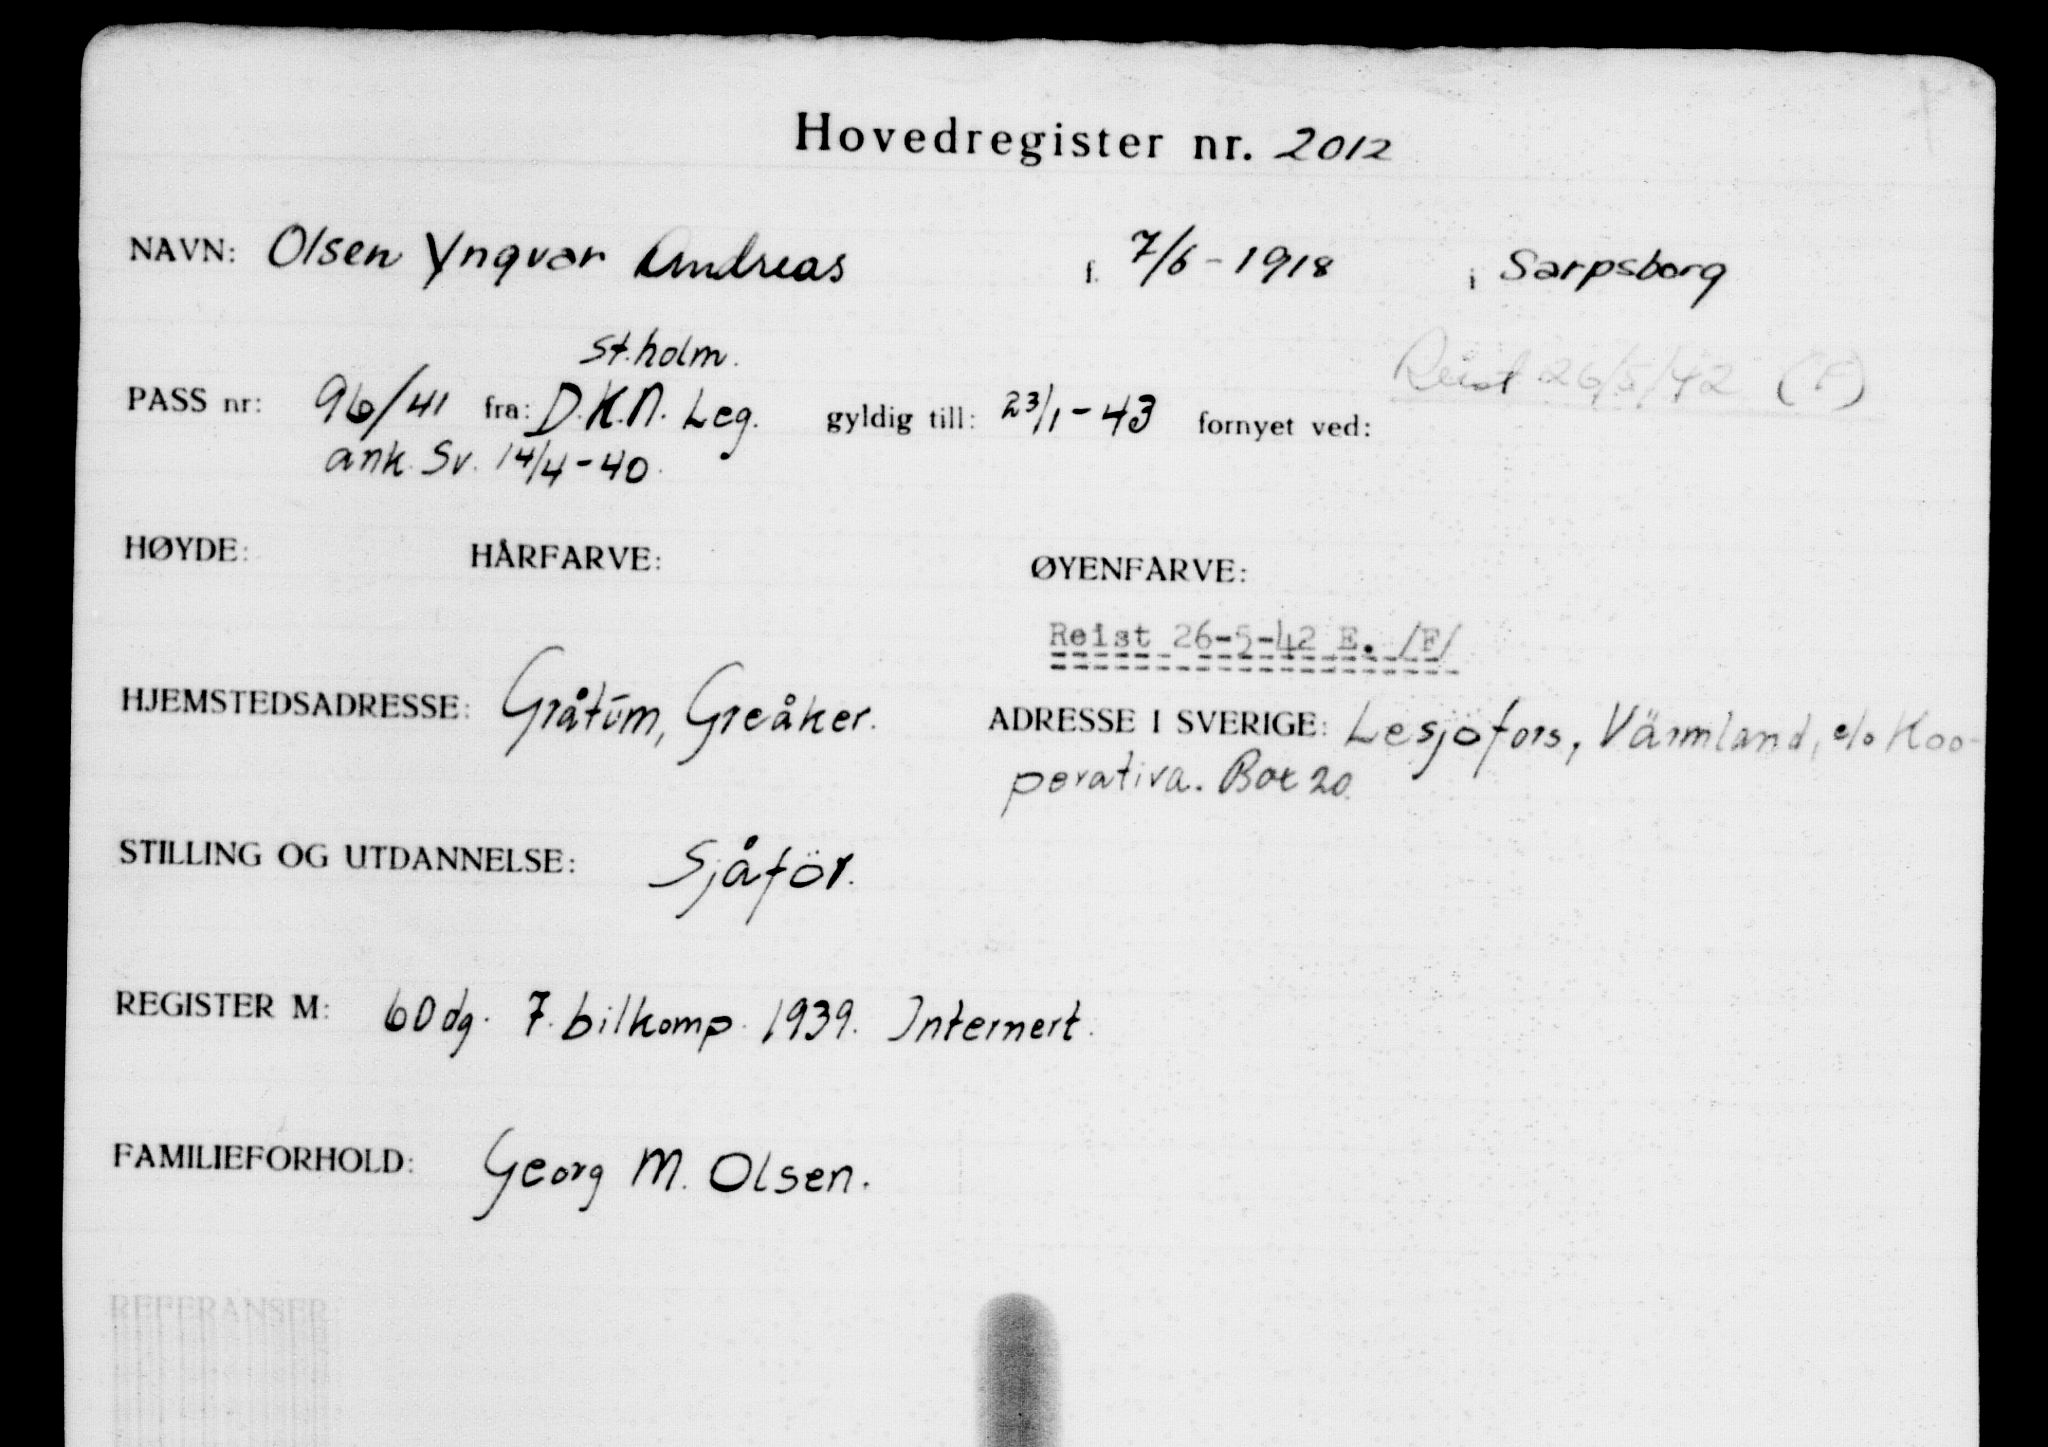 Hovedregister nr. 2012
NAVN: Olsen Yngvar Andreas f. 7/6-1918 i Sarpsborg
St.holm. Reist 26/5/42 (F)
PASS nr: 96/41 fra: D.K.N. Leg. gyldig till: 23/1-43 fornyet ved:
ank. Sv. 14/4-40.
HØYDE: HÅRFARVE: ØYENFARVE:
Reist 26-5-42 E. /F/
HJEMSTEDSADRESSE: Gråtūm, Greåker. ADRESSE I SVERIGE: Lesjöfors, Värmland, c/o Koo-
perativa. Box 20.
STILLING OG UTDANNELSE: Sjåför.
REGISTER M: 60 dg. 7. bilkomp. 1939. Internert.
FAMILIEFORHOLD: Georg M. Olsen.
REFERANSER